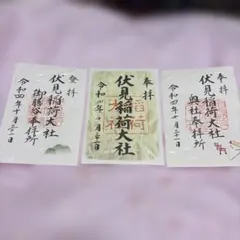 登拝
伏見稲荷大社
御膳谷奉拝所
令和四年十月二十一日
奉拝
伏見稲荷大社
令和四年十月二十一日
奉拝
伏見稲荷大社
奥社奉拝所
令和四年十月二十一日